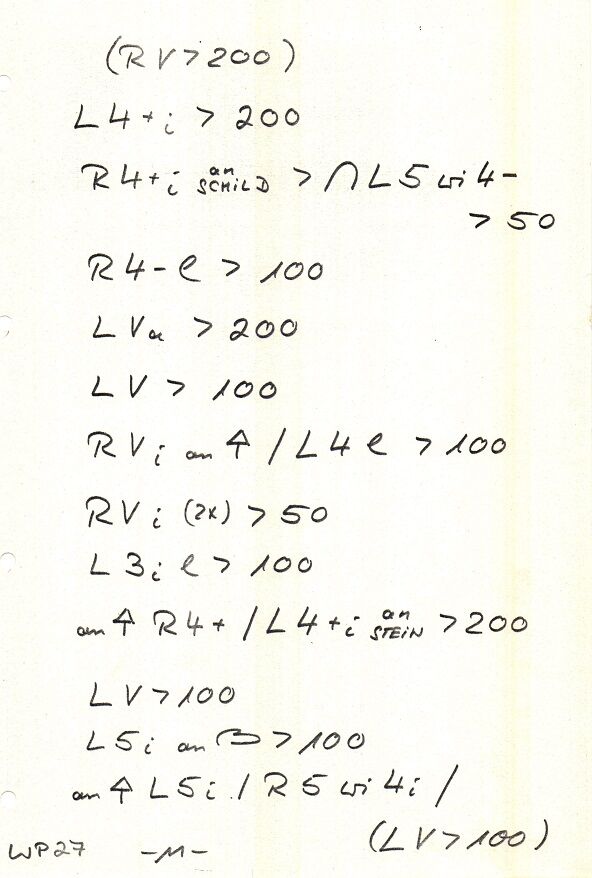 (RV>200)
L4+i > 200
R4+i an SCHILD > ∩ L5 wi 4-
> 50
R4-e > 100
LVa > 200
LV > 100
RVi an ↑ / L4e > 100
RVi (2x) > 50
L3i e > 100
an ↑ R4+ / L4+i an STEiN > 200
LV > 100
L5i an > 100
an ↑ L5i / R5 wi 4i /
(LV > 100)
WP27 -11-